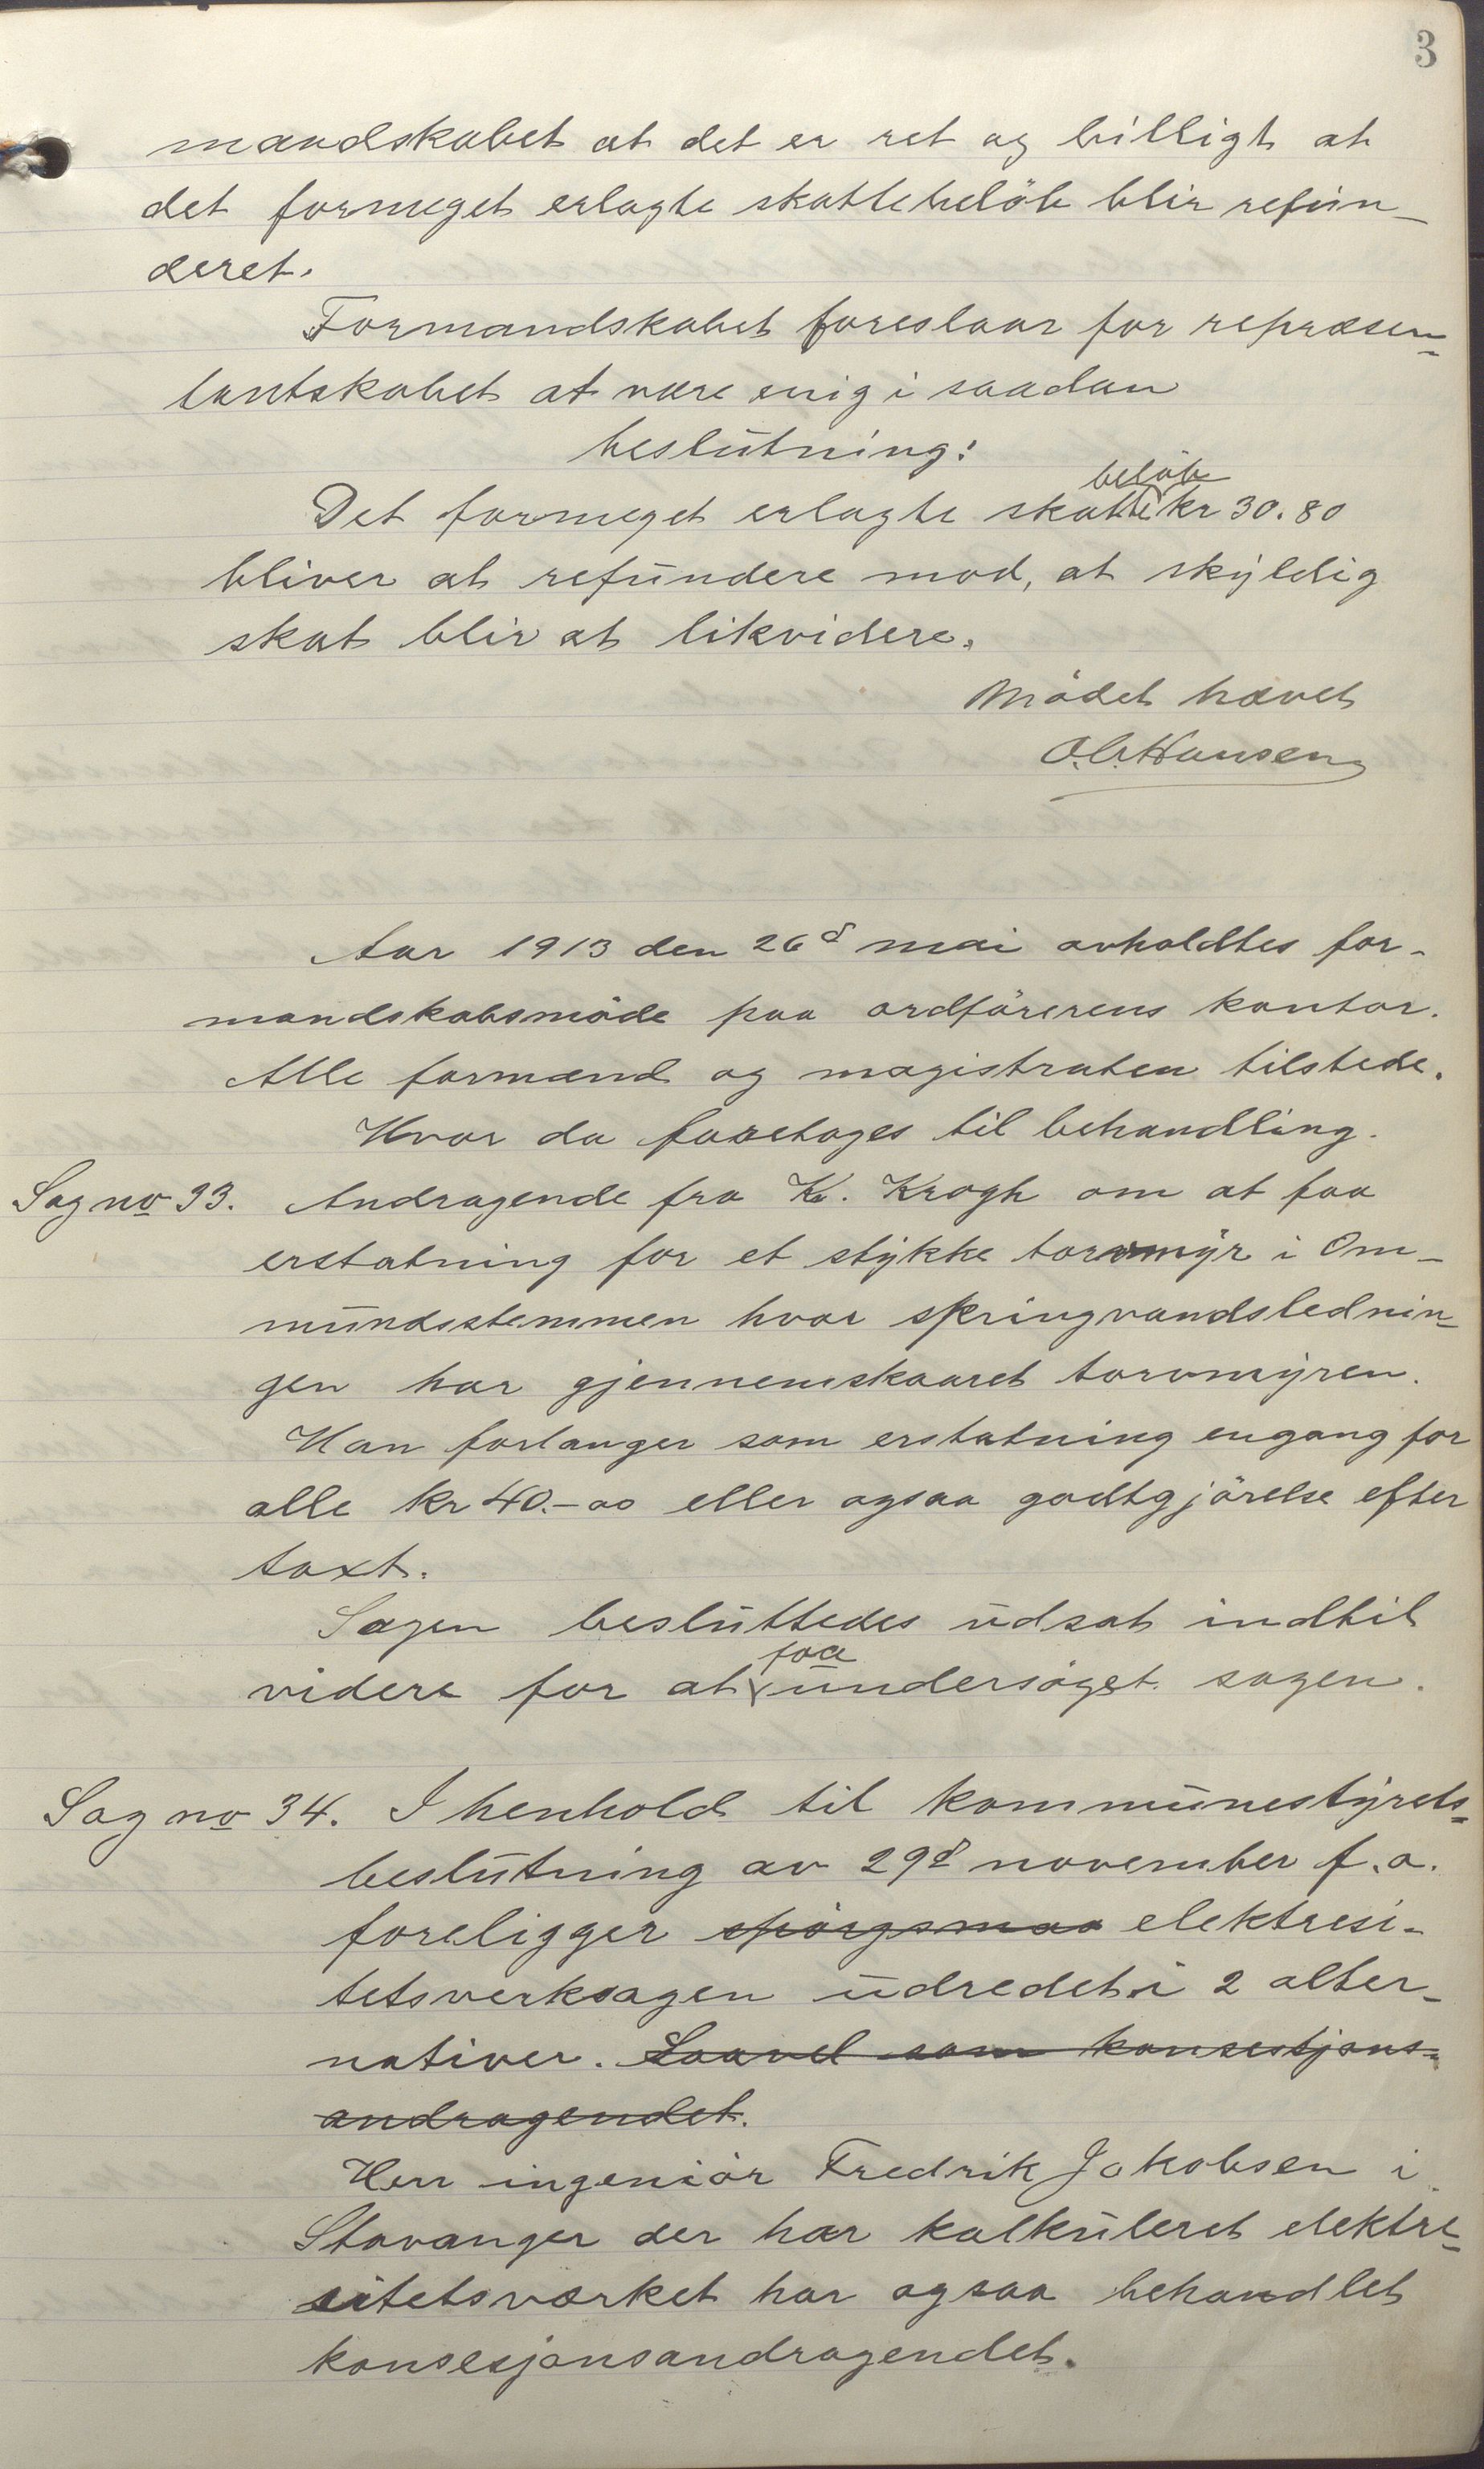 3
mandskabet at det er ret og billigt at
det formeget erlagte skattebelöb blir refun-
deret.
Formandskabet foreslaar for repræsen-
tantskabet at være enig i saadan
beslutning:
belöb
Det formeget erlagte skatte kr 30.80
bliver at refundere mod, at skyldig
skat blir at likvidere.
Mödet hævet
O.C. Hansen
Aar 1913 den 26d mai avholdtes for-
mandskabsmöde paa ordförerens kontor.
Alle formænd og magistraten tilstede.
Hvor da foretoges til behandling.
Sag no 33. Andragende fra K. Krogh om at faa
erstatning for et stykke torvmyr i Om-
mundsstemmen hvor springvandslednin-
gen har gjennemskaaret torvmyren.
Han forlanger som erstatning engang for
alle kr 40.-oo eller ogsaa godtgjörelse efter
taxt.
Sagen besluttedes udsat indtil
faa
videre for at undersöget sagen.
Sag no 34. I henhold til kommunestyrets-
beslutning av 29d november f.a.
foreligger spörgsmaa elektresi-
tetsverksagen udredet i 2 alter-
nativer. Saavel som konsestjons-
andragendet.
Herr ingeniör Fredrik Jakobsen i
Stavanger der har kalkuleret elektre-
sitetsværket har ogsaa behandlet
konsesjonsandragendet.